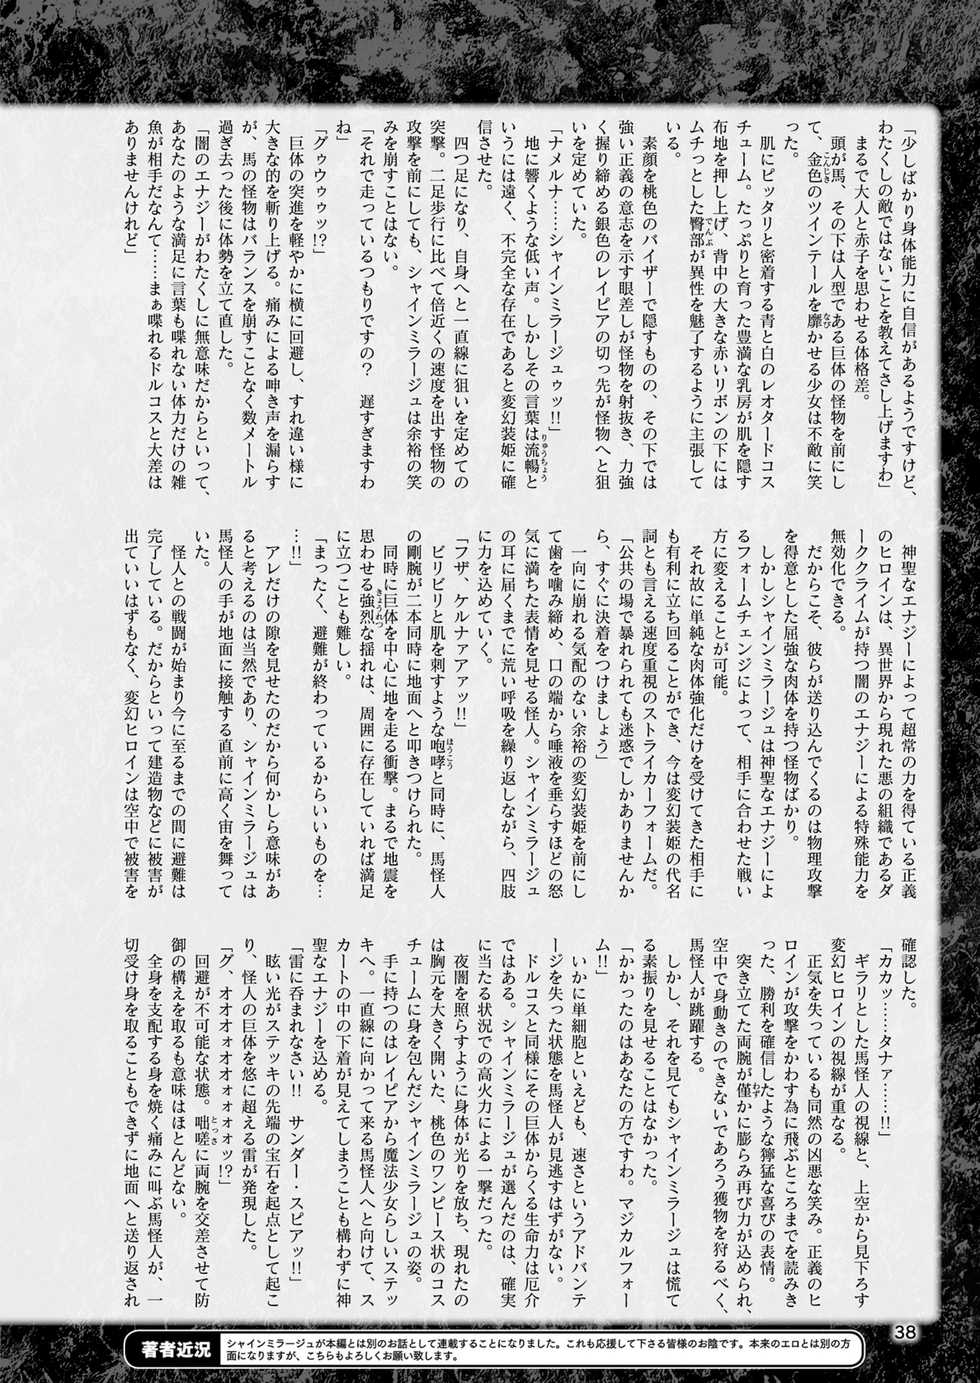 「少しばかり身体能力に自信があるようですけど、
わたくしの敵ではないことを教えてさし上げますわ」
　まるで大人と赤子を思わせる体格差。
　頭が馬、その下は人型である巨体の怪物を前にし
て、金色のツインテールを靡かせる少女は不敵に笑
った。
　肌にピッタリと密着する青と白のレオタードコス
チューム。たっぷりと育った豊満な乳房が肌を隠す
布地を押し上げ、背中の大きな赤いリボンの下には
ムチっとした臀部が異性を魅了するように主張して
いる。
　素顔を桃色のバイザーで隠すものの、その下では
強い正義の意志を示す眼差しが怪物を射抜き、力強
く握り締める銀色のレイピアの切っ先が怪物へと狙
いを定めていた。
「ナメルナ……シャインミラージュゥッ!!」
　地に響くような低い声。しかしその言葉は流暢と
いうには遠く、不完全な存在であると変幻装姫に確
信させた。
　四つ足になり、自身へと一直線に狙いを定めての
突撃。二足歩行に比べて倍近くの速度を出す怪物の
攻撃を前にしても、シャインミラージュは余裕の笑
みを崩すことはない。
「それで走っているつもりですの？　遅すぎますわ
ね」
「グゥウゥゥッ!?」
　巨体の突進を軽やかに横に回避し、すれ違い様に
大きな的を斬り上げる。痛みによる呻き声を漏らす
が、馬の怪物はバランスを崩すことなく数メートル
過ぎ去った後に体勢を立て直した。
「闇のエナジーがわたくしに無意味だからといって、
あなたのような満足に言葉も喋れない体力だけの雑
魚が相手だなんて……まぁ喋れるドルコスと大差は
ありませんけれど」
　神聖なエナジーによって超常の力を得ている正義
のヒロインは、異世界から現れた悪の組織であるダ
ーククライムが持つ闇のエナジーによる特殊能力を
無効化できる。
　だからこそ、彼らが送り込んでくるのは物理攻撃
を得意とした屈強な肉体を持つ怪物ばかり。
　しかしシャインミラージュは神聖なエナジーによ
るフォームチェンジによって、相手に合わせた戦い
方に変えることが可能。
　それ故に単純な肉体強化だけを受けてきた相手に
も有利に立ち回ることができ、今は変幻装姫の代名
詞とも言える速度重視のストライカーフォームだ。
「公共の場で暴れられても迷惑でしかありませんか
ら、すぐに決着をつけましょう」
　一向に崩れる気配のない余裕の変幻装姫を前にし
て歯を噛み締め、口の端から唾液を垂らすほどの怒
気に満ちた表情を見せる怪人。シャインミラージュ
の耳に届くまでに荒い呼吸を繰り返しながら、四肢
に力を込めていく。
「フザ、ケルナァァァッ!!」
　ビリビリと肌を刺すような咆哮と同時に、馬怪人
の剛腕が二本同時に地面へと叩きつけられた。
　同時に巨体を中心に地を走る衝撃。まるで地震を
思わせる強烈な揺れは、周囲に存在していれば満足
に立つことも難しい。
「まったく、避難が終わっているからいいものを…
…!!」
　アレだけの隙を見せたのだから何かしら意味があ
ると考えるのは当然であり、シャインミラージュは
馬怪人の手が地面に接触する直前に高く宙を舞って
いた。
　怪人との戦闘が始まり今に至るまでの間に避難は
完了している。だからといって建造物などに被害が
出ていいはずもなく、変幻ヒロインは空中で被害を
確認した。
「カカッ……タナァ……!!」
　ギラリとした馬怪人の視線と、上空から見下ろす
変幻ヒロインの視線が重なる。
　正気を失っているも同然の凶悪な笑み。正義のヒ
ロインが攻撃をかわす為に飛ぶところまでを読みき
った、勝利を確信したような獰猛な喜びの表情。
　突き立てた両腕が僅かに膨らみ再び力が込められ、
空中で身動きのできないであろう獲物を狩るべく、
馬怪人が跳躍する。
　しかし、それを見てもシャインミラージュは慌て
る素振りを見せることはなかった。
「かかったのはあなたの方ですわ。マジカルフォー
ム!!」
　いかに単細胞といえども、速さというアドバンテ
ージを失った状態を馬怪人が見逃すはずがない。
　ドルコスと同様にその巨体からくる生命力は厄介
ではある。シャインミラージュが選んだのは、確実
に当たる状況での高火力による一撃だった。
　夜闇を照らすように身体が光りを放ち、現れたの
は胸元を大きく開いた、桃色のワンピース状のコス
チュームに身を包んだシャインミラージュの姿。
　手に持つのはレイピアから魔法少女らしいステッ
キへ。一直線に向かって来る馬怪人へと向けて、ス
カートの中の下着が見えてしまうことも構わずに神
聖なエナジーを込める。
「雷に呑まれなさい!!　サンダー・スピアッ!!」
　眩い光がステッキの先端の宝石を起点として起こ
り、怪人の巨体を悠に超える雷が発現した。
「グ、オオオォオオォォォッ!?」
　回避が不可能な状態。咄嗟に両腕を交差させて防
御の構えを取るも意味はほとんどない。
　全身を支配する身を焼く痛みに叫ぶ馬怪人が、一
切受け身を取ることもできずに地面へと送り返され
38
著者近況
シャインミラージュが本編とは別のお話として連載することになりました。これも応援して下さる皆様のお陰です。本来のエロとは別の方
面になりますが、こちらもよろしくお願い致します。